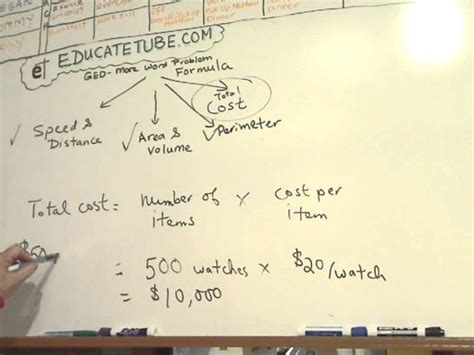 Dinner
et EDUCATETUBE.COM
GED- More Word Problem
Formula
Total
Cost
✓ Speed &
Distance
✓ Area &
Volume
✓ Perimeter
Total cost = Number of x Cost per
items item
$50
= 500 watches x $20/watch
= $10,000